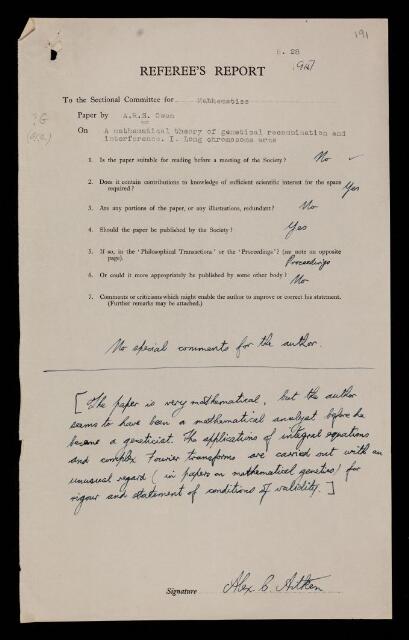 191
R. 28
(947)
REFEREE'S REPORT
To the Sectional Committee for Mathematics
Paper by A.R.G. Owen
?G
On A mathematical theory of genetical recombination and
interference. I. Long chromosome arms
1. Is the paper suitable for reading before a meeting of the Society? No
2. Does it contain contributions to knowledge of sufficient scientific interest for the space
required? Yes
3. Are any portions of the paper, or any illustrations, redundant? No
4. Should the paper be published by the Society? Yes
5. If so, in the 'Philosophical Transactions' or the 'Proceedings'? (see note on opposite
page). Proceedings
6. Or could it more appropriately be published by some other body? No
7. Comments or criticisms which might enable the author to improve or correct his statement.
(Further remarks may be attached.)
No special comments for the author.
[The paper is very mathematical, but the author
seems to have been a mathematical analyst before he
became a geneticist. The applications of integral equations
and complex Fourier transforms are carried out with an
unusual regard (in papers on mathematical genetics) for
rigour and statement of conditions of validity.]
Signature Alex C. Aitken